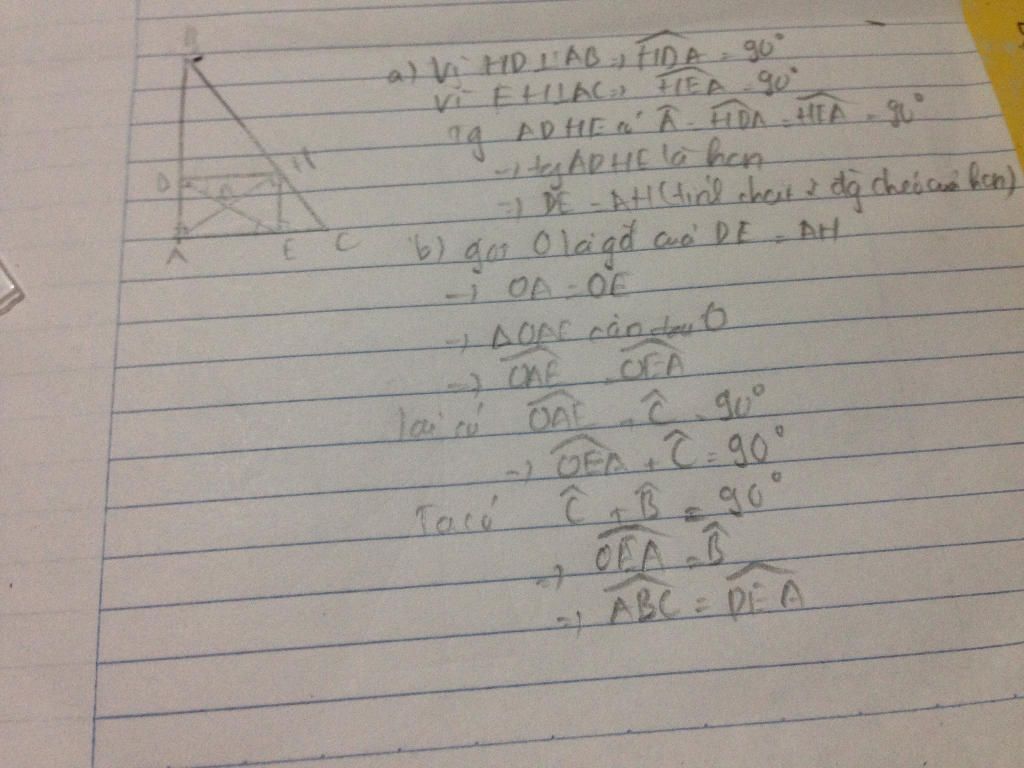 B
H
D
O
A
E
C
a) Vì HD⊥AB → $\widehat{HDA}$ = 90°
Vì EH⊥AC → $\widehat{HEA}$ = 90°
Tg ADHE có $\widehat{A}$ = $\widehat{HDA}$ = $\widehat{HEA}$ = 90°
→ tg ADHE là hcn
→ DE = AH (tính chất 2 đg chéo của hcn)
b) gọi O là gđ của DE = AH
→ OA = OE
→ ΔOAE cân tại O
→ $\widehat{OAE}$ = $\widehat{OEA}$
lại có $\widehat{OAE}$ + $\widehat{C}$ = 90°
→ $\widehat{OEA}$ + $\widehat{C}$ = 90°
Ta có $\widehat{C}$ + $\widehat{B}$ = 90°
→ $\widehat{OEA}$ = $\widehat{B}$
→ $\widehat{ABC}$ = $\widehat{DEA}$